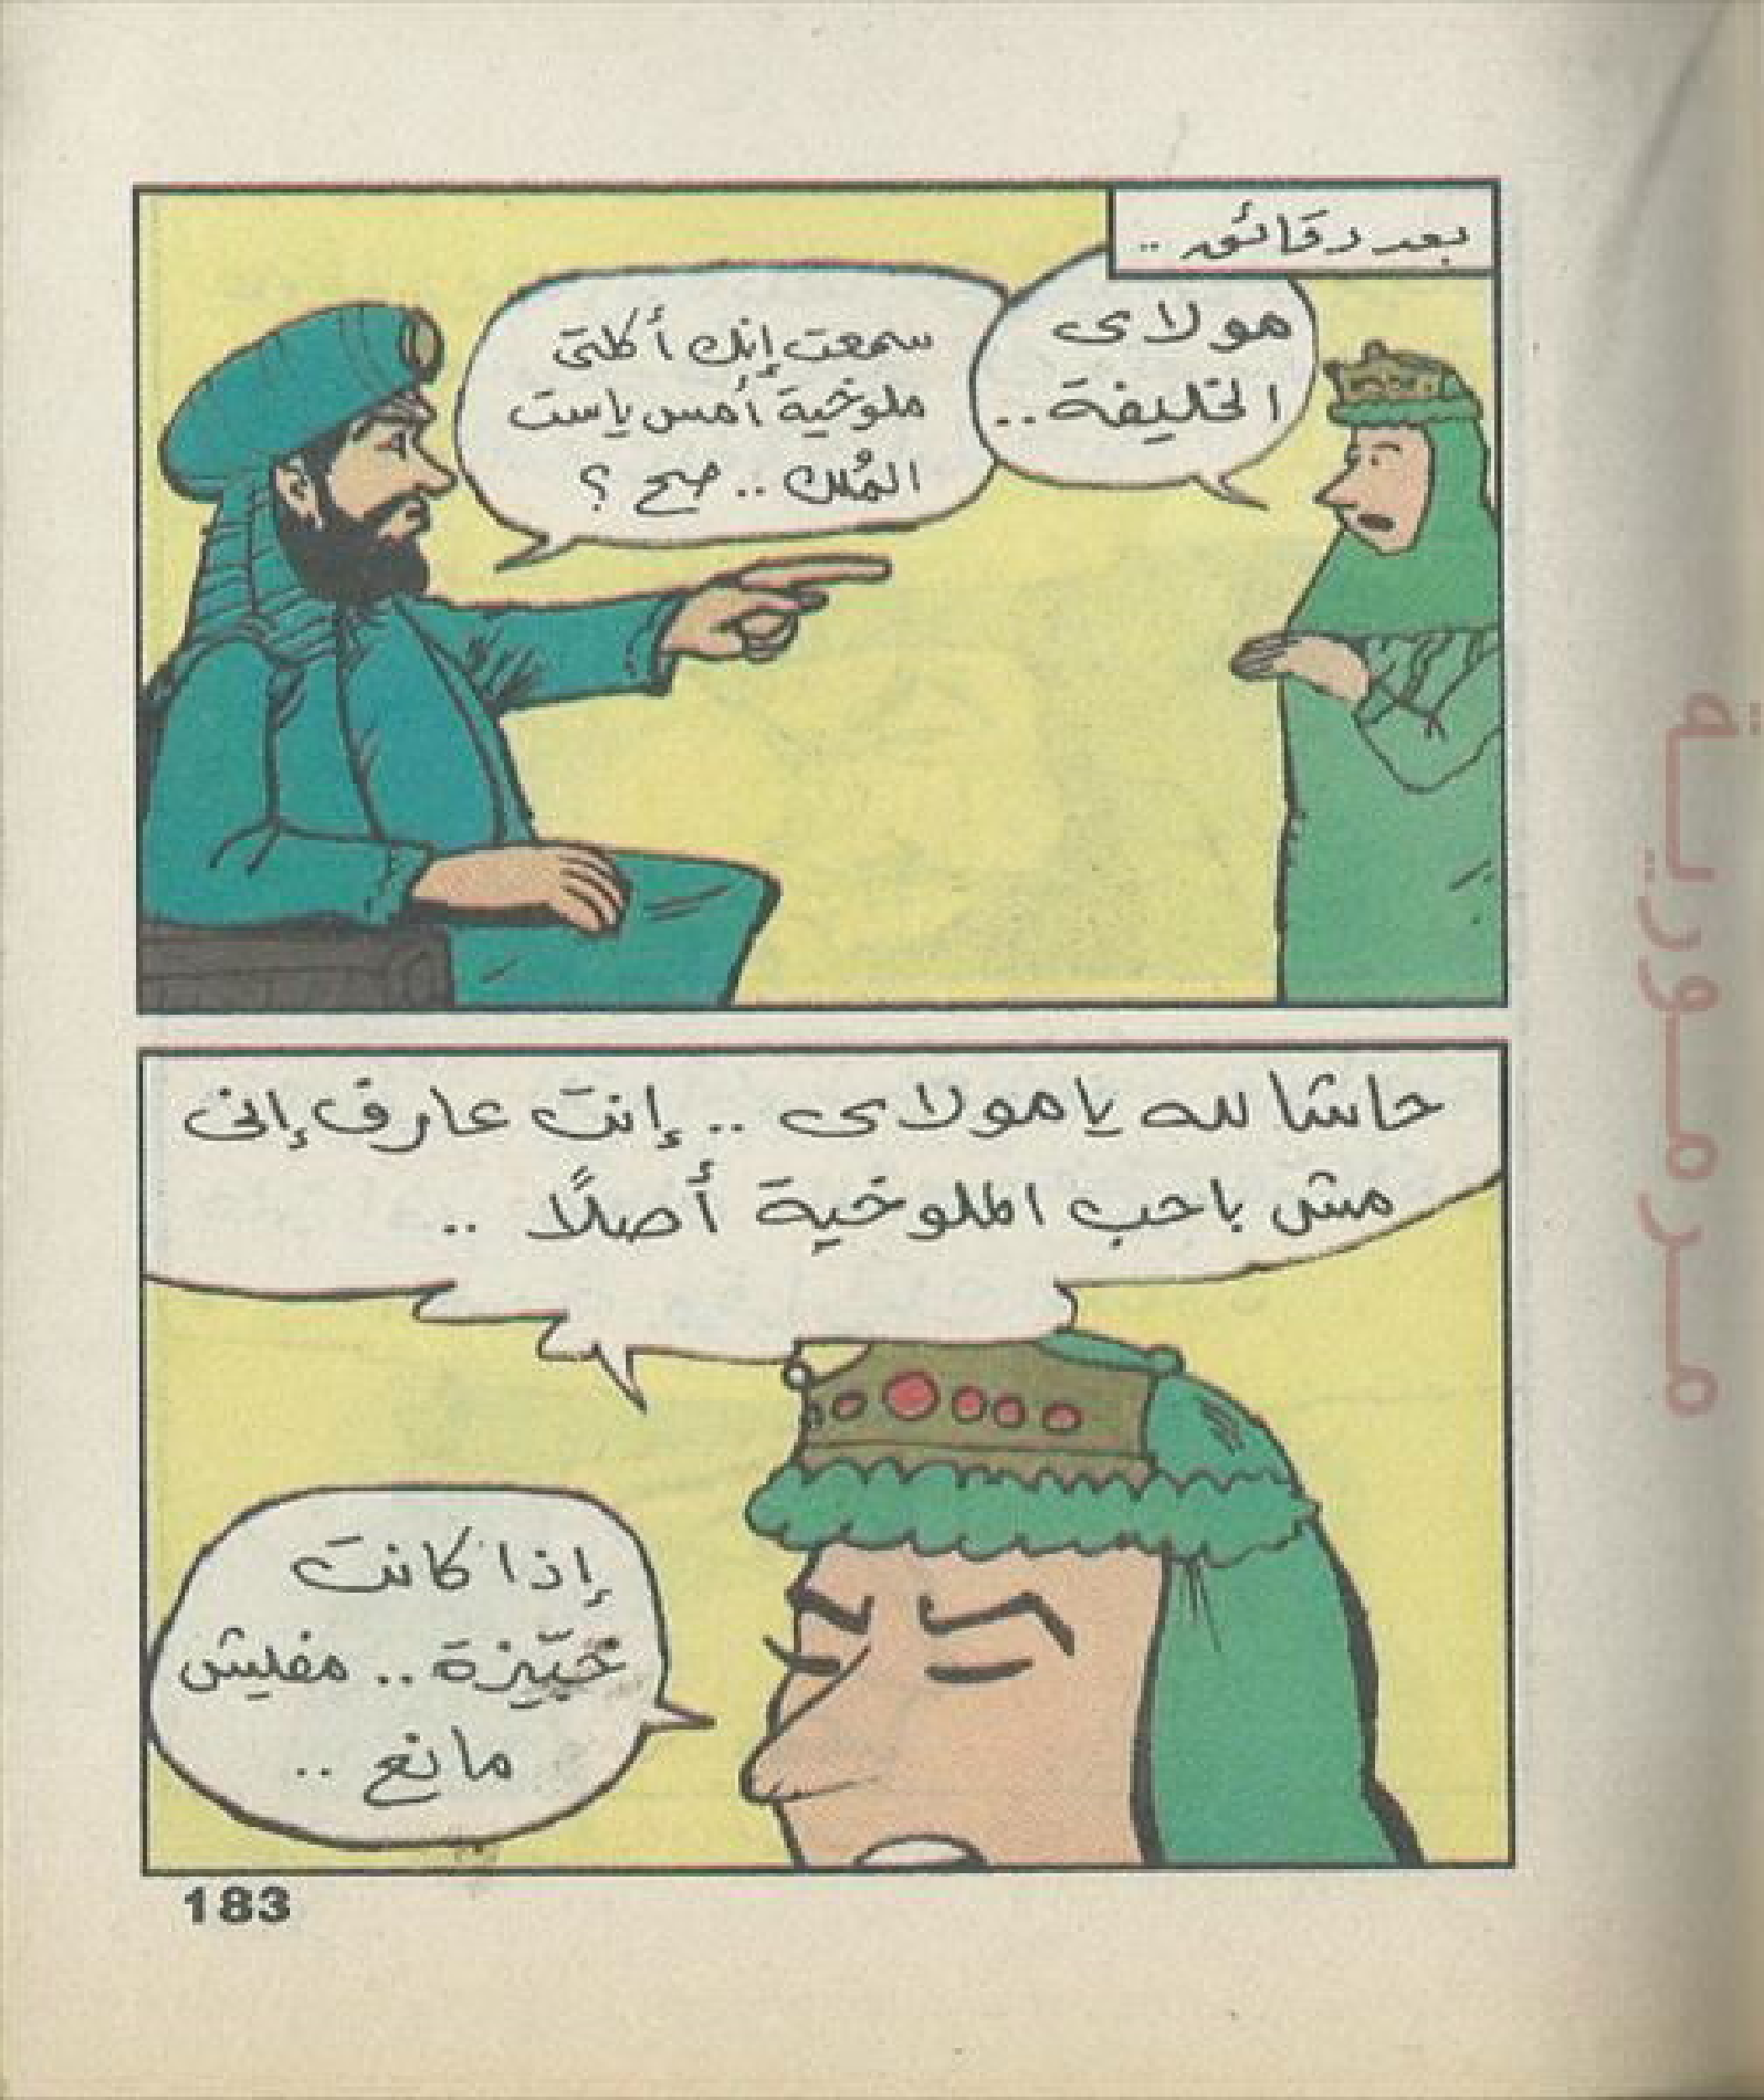 بعد دقائق ..
مولاى
الخليفة ..
سمعت إنك أكلتى
ملوخية أمس ياست
المُلك .. صح ؟
حاشا لله يا مولاى .. إنت عارف إنى
مش باحب الملوخية أصلًا ..
إذا كانت
خبّيزة .. مفليش
مانع ..
183
مدرمورية